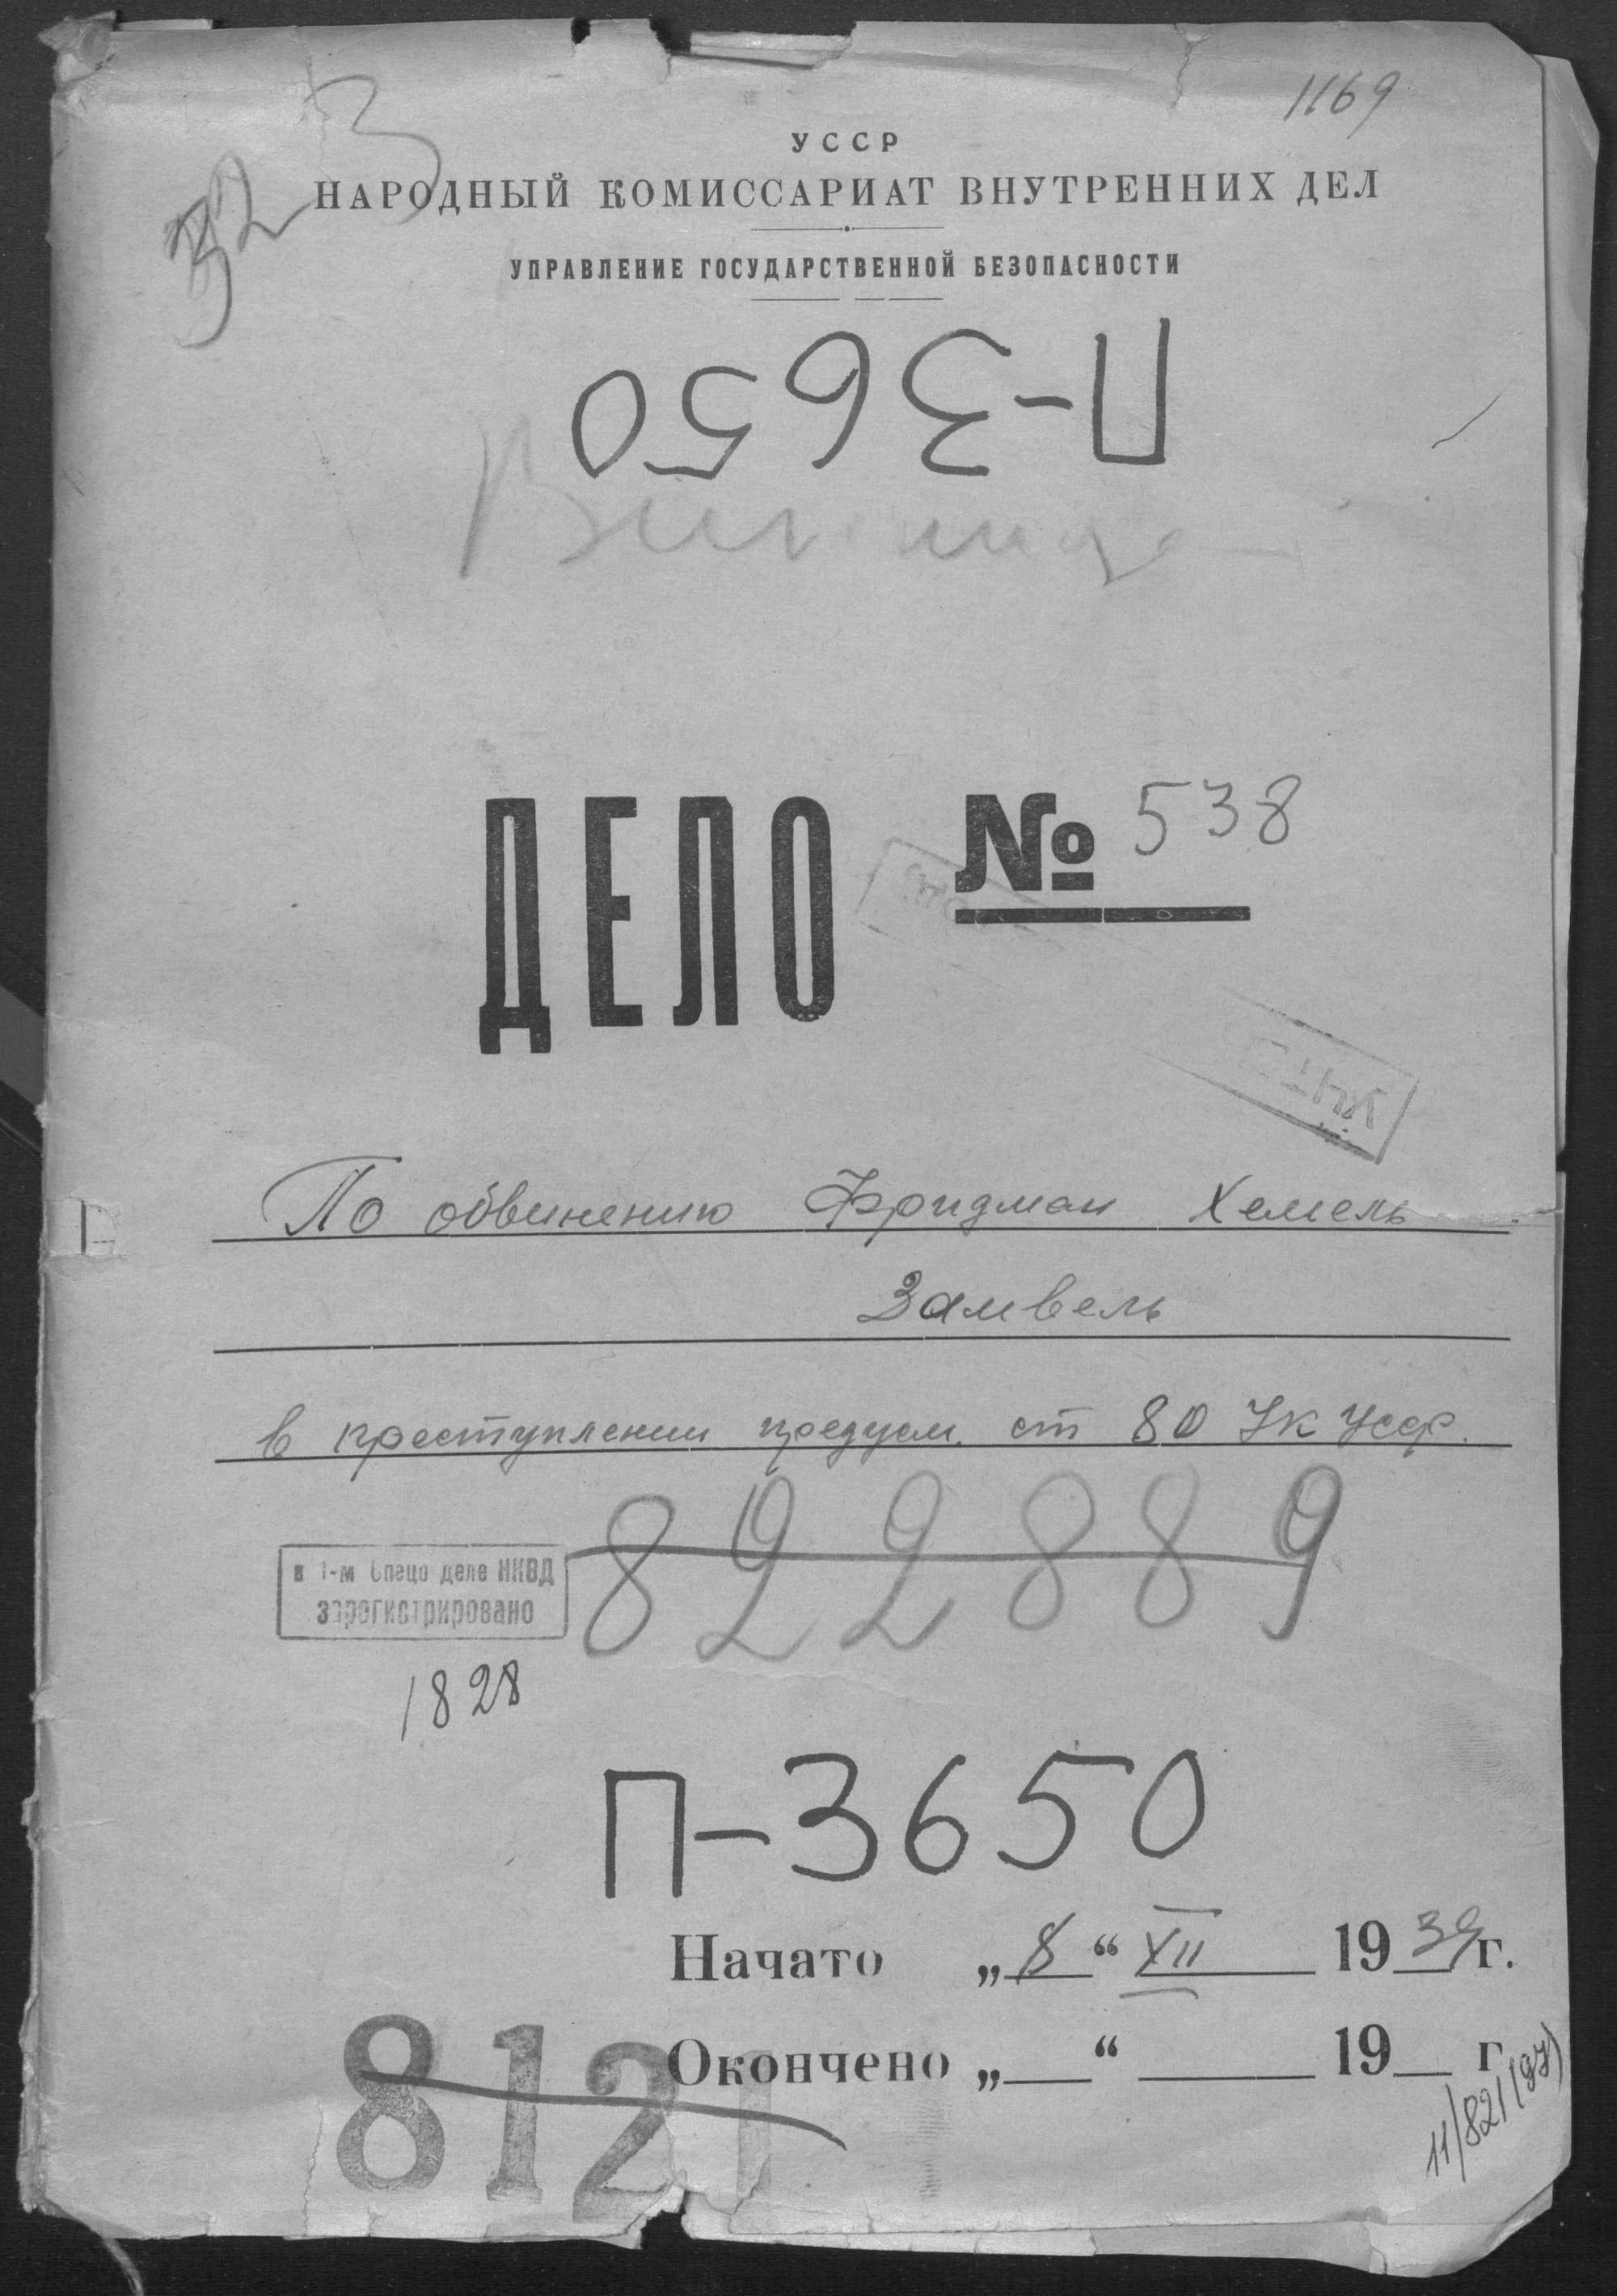 1169
323
УССР
НАРОДНЫЙ КОМИССАРИАТ ВНУТРЕННИХ ДЕЛ
УПРАВЛЕНИЕ ГОСУДАРСТВЕННОЙ БЕЗОПАСНОСТИ
П-3650
ДЕЛО № 538
По обвинению Фридман Хемель
Замвель
в преступлении предусм. ст 80 УК УССР.
822889
в 1-м Спецо деле НКВД
зарегистрировано
1828
П-3650
Начато „8“ XII 1939 г.
Окончено „ “ 19 г.
8121
11/821(97)